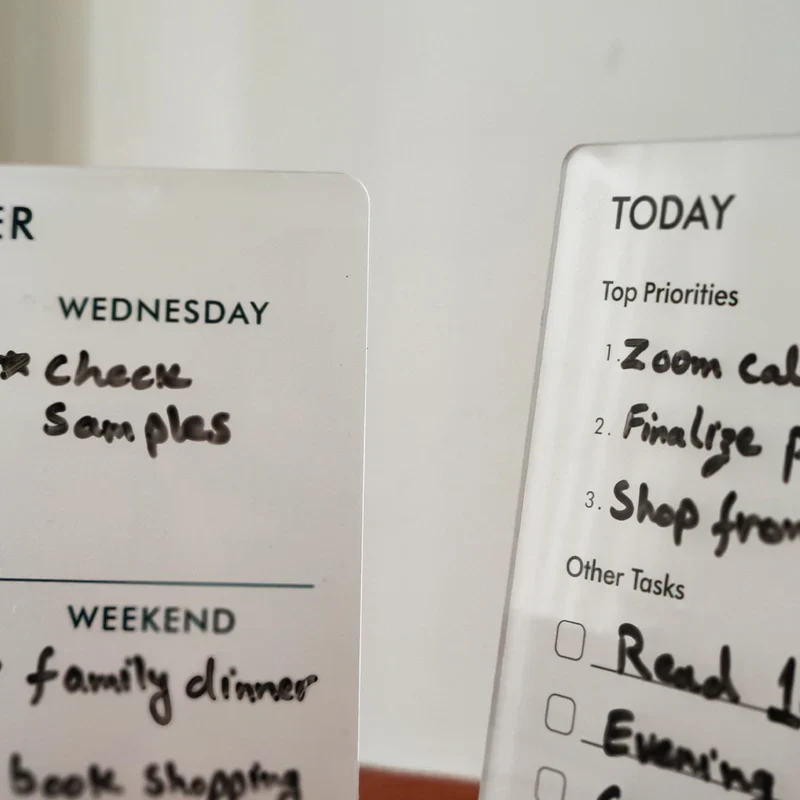 ER
WEDNESDAY
* Check
Samples
WEEKEND
family dinner
book shopping
TODAY
Top Priorities
1. Zoom cal
2. Finalize p
3. Shop from
Other Tasks
Read 1
Evening